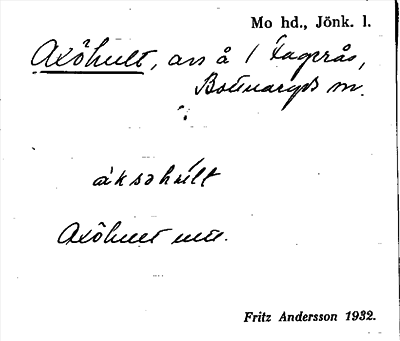 Mo hd., Jönk. l.
Axöhult, avs å 1 Fagerås,
Bottnaryds sn.
áksəhúlt
Axöhult
Fritz Andersson 1932.